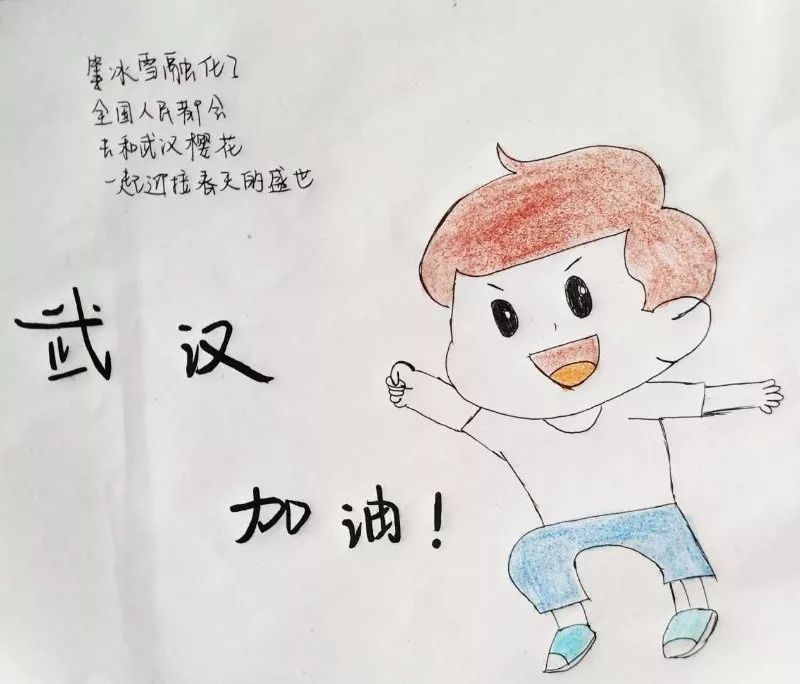 等冰雪融化了
全国人民都会
去和武汉樱花
一起迎接春天的盛世
武汉
加油！